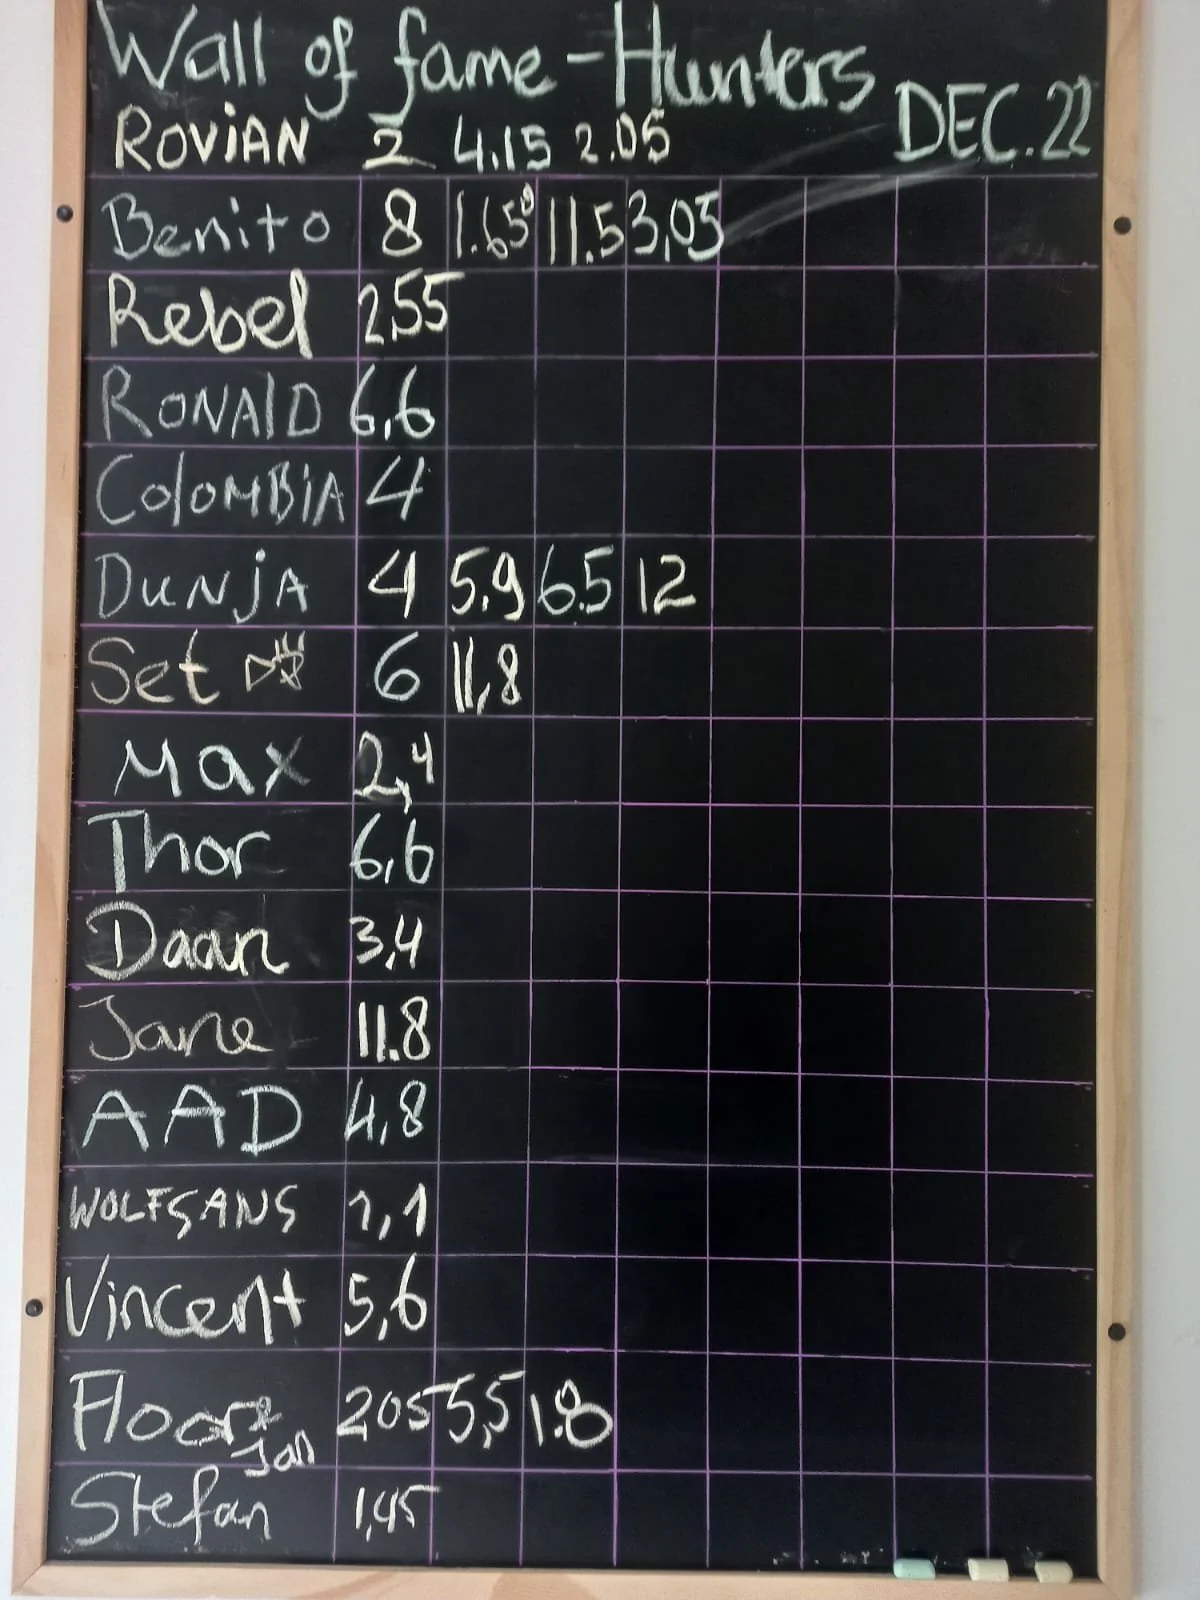 Wall of fame - Hunters
DEC. 22
ROViAN 2 4.15 2.05
Benito 8 1.65 11.5 3,05
Rebel 2,55
RONAlD 6,6
ColoMBiA 4
DuNjA 4 5.9 6.5 12
Set 6 11,8
Max 2,4
Thor 6,6
Daan 3,4
Jane 11.8
AAD 4,8
WOLFGANG 1,1
Vincent 5,6
Floor & Jan 2,05 5,5 1.8
Stefan 1,45